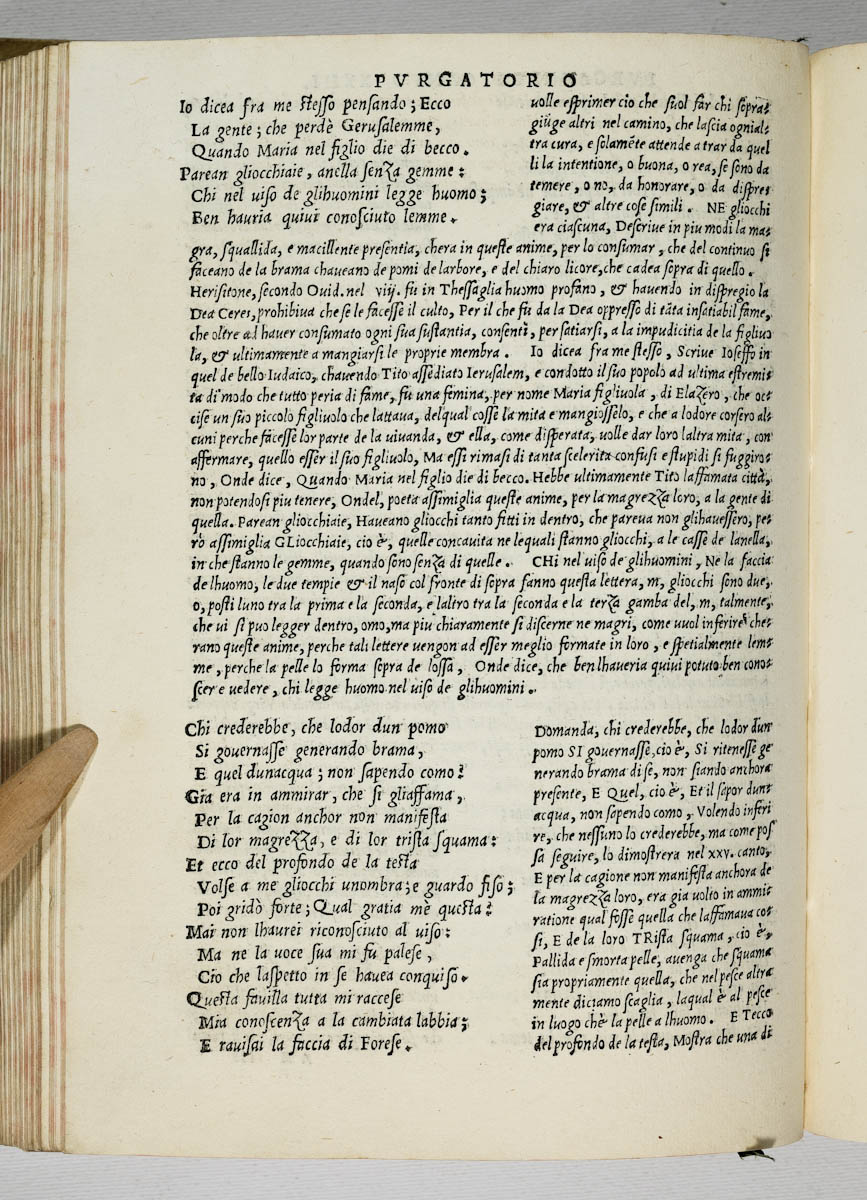 PVRGATORIO
Io dicea fra me stesso pensando; Ecco
La gente; che perdè Gerusalemme,
Quando Maria nel figlio die di becco.
Parean gliocchiaie, anella senza gemme:
Chi nel uiso de glihuomini legge huomo;
Ben hauria quiui conosciuto lemme.
uolle esprimer cio che suol far chi sopra=
giũge altri nel camino, che lascia ognial=
tra cura, e solamẽte attende a trar da quel
li la intentione, o buona, o rea, se sono da
temere, o no, da honorare, o da dispre=
giare, & altre cose simili. NE gliocchi
era ciascuna, Descriue in piu modi la ma=
gra, squallida, e macillente presentia, chera in queste anime, per lo consumar, che del continuo si
faceano de la brama chaueano de pomi de larbore, e del chiaro licore, che cadea sopra di quello.
Herisitone, secondo Ouid. nel viij. fu in Thessaglia huomo profano, & hauendo in dispregio la
Dea Ceres, prohibiua che se le facesse il culto, Per il che fu da la Dea oppresso di tãta insatiabil fame,
che oltre ad hauer consumato ogni sua sustantia, consentì, per satiarsi, a la impudicitia de la figliuo
la, & ultimamente a mangiarsi le proprie membra. Io dicea fra me stesso, Scriue Ioseffo in
quel de bello Iudaico, chauendo Tito assediato Ierusalem, e condotto il suo popolo ad ultima estremi=
ta di modo che tutto peria di fame, fu una femina, per nome Maria figliuola, di Elazero, che oc=
cise un suo piccolo figliuolo che lattaua, delqual cosse la mita e mangiosselo, e che a lodore corsero al=
cuni perche facesse lor parte de la uiuanda, & ella, come disperata, uolle dar loro laltra mita, con
affermare, quello esser il suo figliuolo, Ma essi rimasi di tanta scelerita confusi e stupidi si fuggiro=
no, Onde dice, Quando Maria nel figlio die di becco. Hebbe ultimamente Tito laffamata città,
non potendosi piu tenere, Ondel, poeta assimiglia queste anime, per la magrezza loro, a la gente di
quella. Parean gliocchiaie, Haueano gliocchi tanto fitti in dentro, che pareua non glihauessero, pe=
rò assimiglia GLiocchiaie, cio è, quelle concauita ne lequali stanno gliocchi, a le casse de lanella,
in che stanno le gemme, quando sono senza di quelle. CHi nel uiso de glihuomini, Ne la faccia
de lhuomo, le due tempie & il naso col fronte di sopra fanno questa lettera, m, gliocchi sono due,
o, posti luno tra la prima e la seconda, e laltro tra la seconda e la terza gamba del, m, talmente,
che ui si puo legger dentro, omo, ma piu chiaramente si discerne ne magri, come uuol inferire che=
rano queste anime, perche tali lettere uengon ad esser meglio formate in loro, e spetialmente lem=
me, perche la pelle lo forma sopra de lossa, Onde dice, che ben lhaueria quiui potuto ben cono=
scer e uedere, chi legge huomo nel uiso de glihuomini.
Chi crederebbe, che lodor dun pomo
Si gouernasse generando brama,
E quel dunacqua; non sapendo como?
Gia era in ammirar, che si gliaffama,
Per la cagion anchor non manifesta
Di lor magrezza, e di lor trista squama:
Et ecco del profondo de la testa
Volse a me gliocchi unombra; e guardo fiso;
Poi gridò forte; Qual gratia mè questa?
Mai non lhaurei riconosciuto al uiso:
Ma ne la uoce sua mi fu palese,
Cio che laspetto in se hauea conquiso.
Questa fauilla tutta mi raccese
Mia conoscenza a la cambiata labbia;
E rauisai la faccia di Forese.
Domanda, chi crederebbe, che lodor dun
pomo SI gouernasse, cio è, Si ritenesse ge
nerando brama di se, non siando anchora
presente, E Quel, cio è, Et il sapor dun=
acqua, non sapendo como, Volendo inferi
re, che nessuno lo crederebbe, ma come pos
sa seguire, lo dimostrera nel xxv. canto,
E per la cagione non manifesta anchora de
la magrezza loro, era gia uolto in ammi=
ratione qual fosse quella che laffamaua co=
si, E de la loro TRista squama, cio è,
Pallida e smorta pelle, auenga che squama
sia propriamente quella, che nel pesce altra
mente diciamo scaglia, laqual è al pesce
in luogo chè la pelle a lhuomo. E Tecco
del profondo de la testa, Mostra che una di